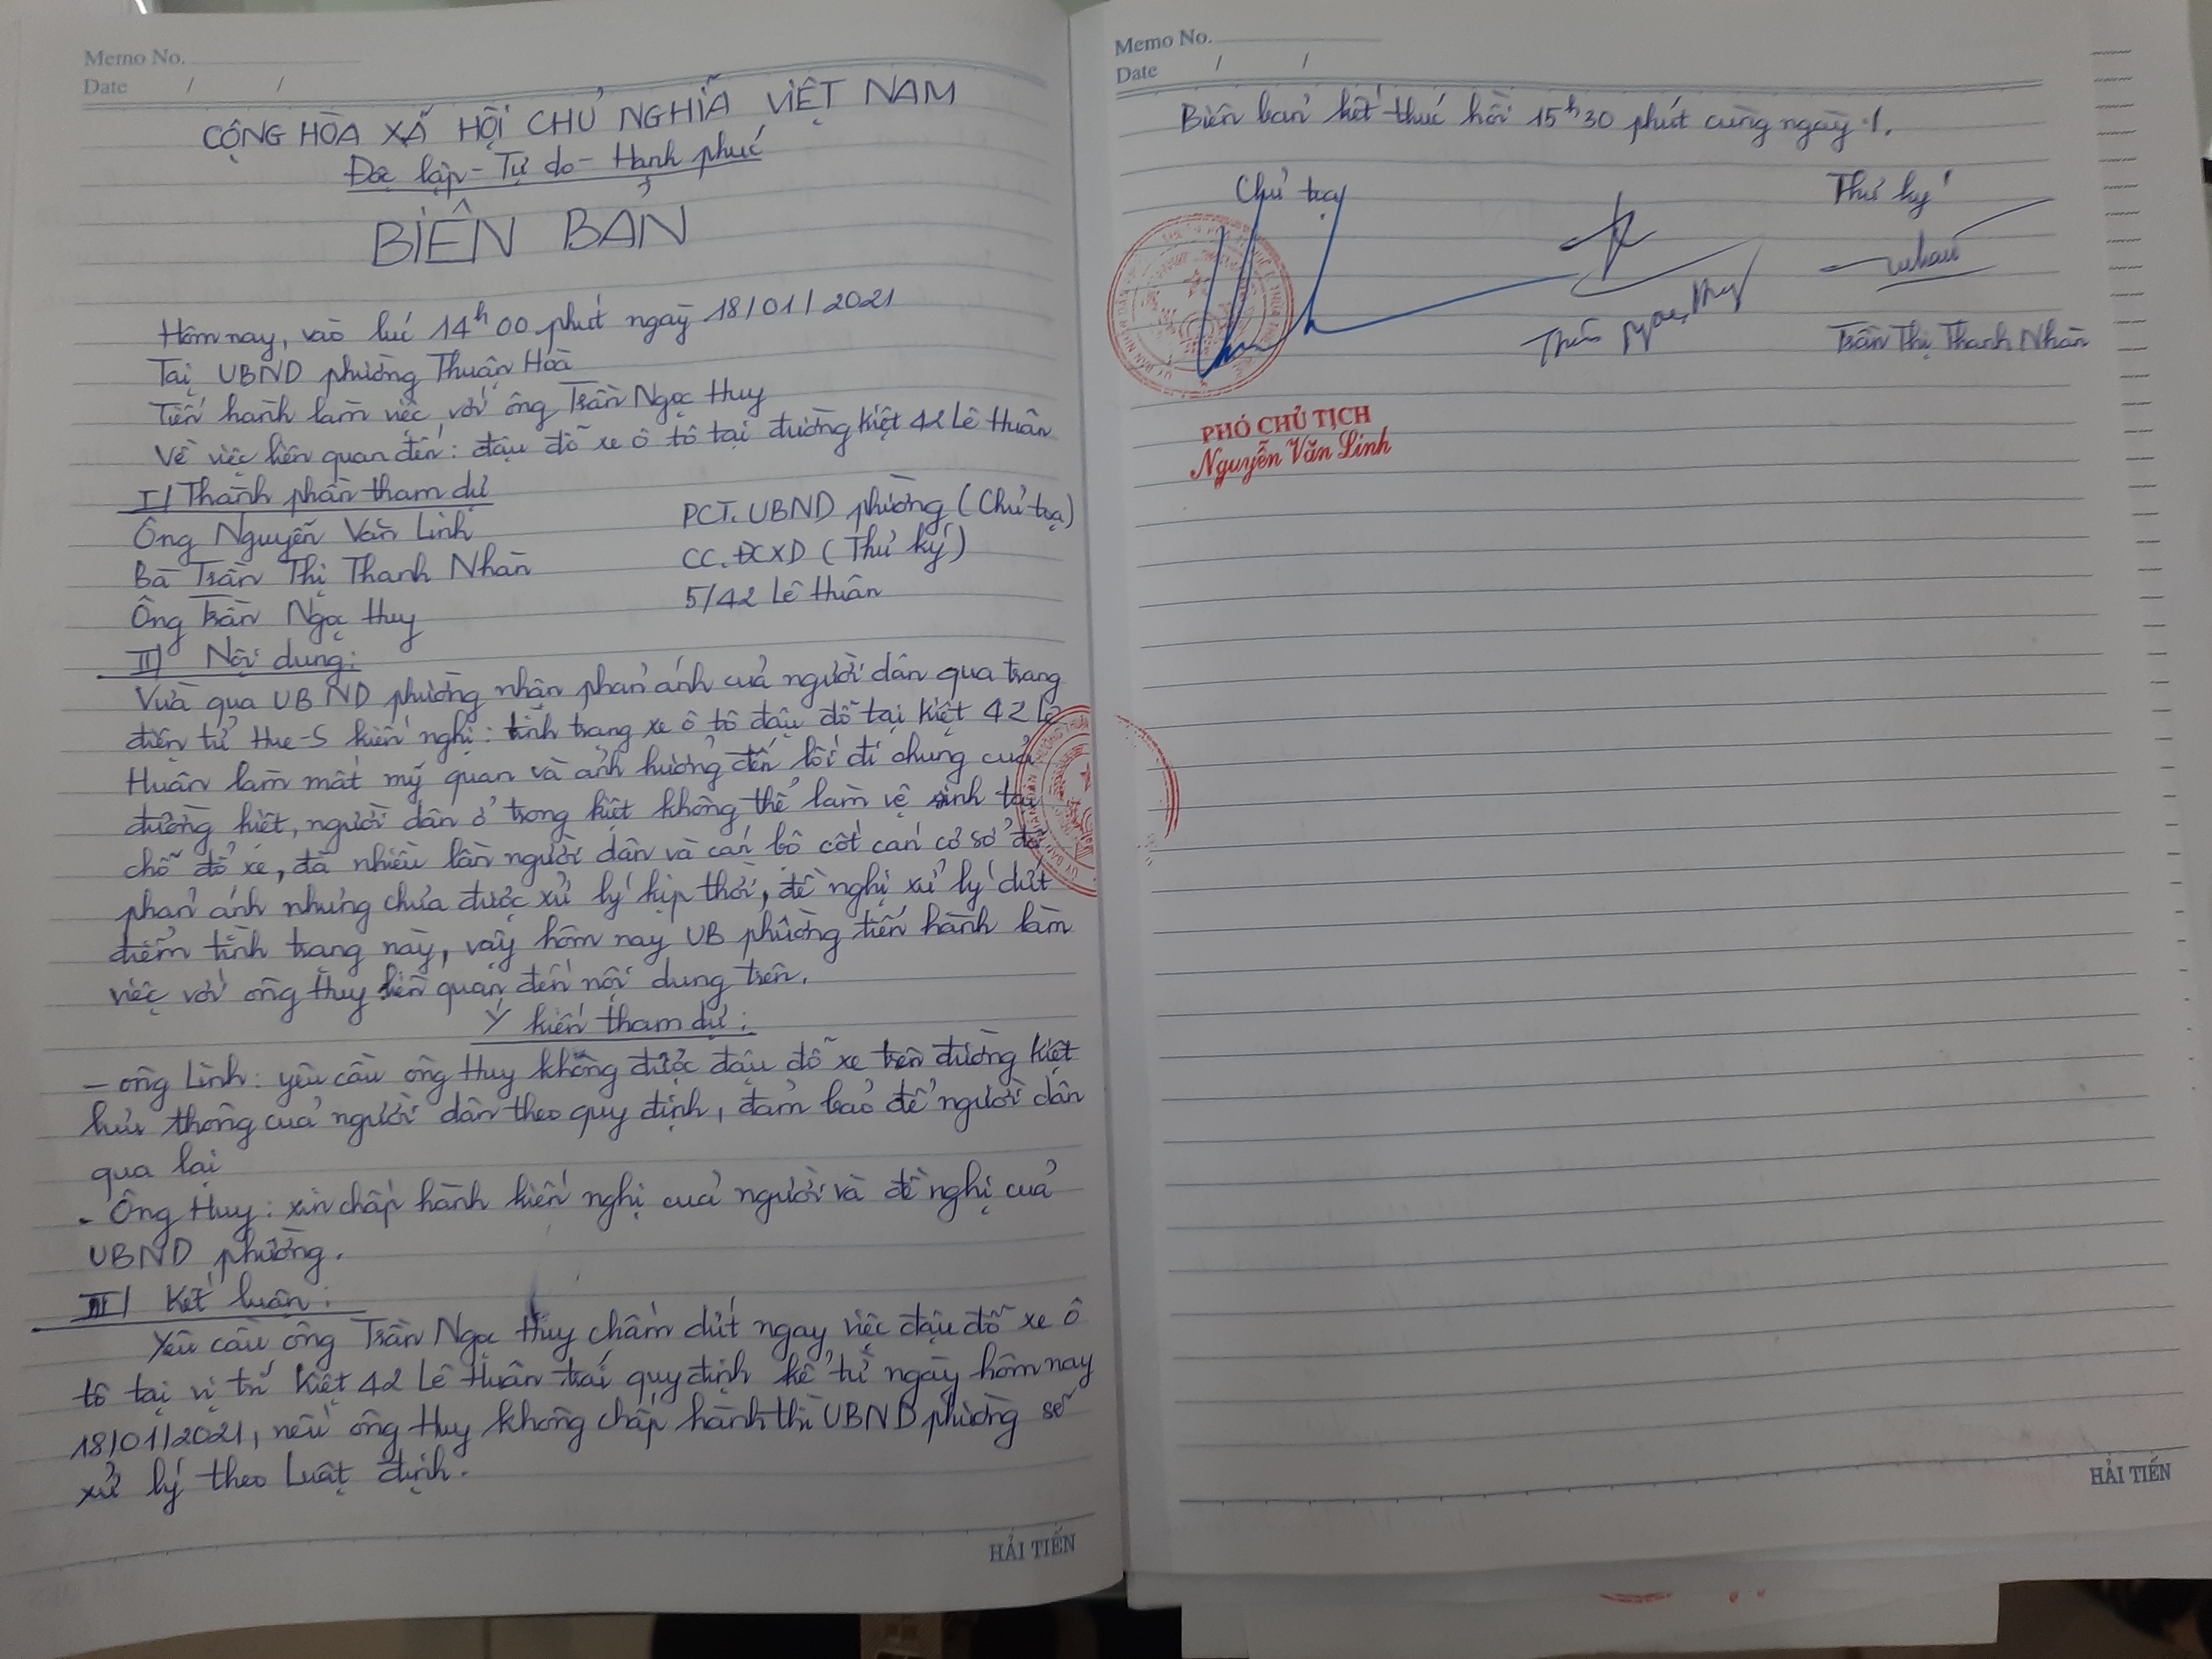 Memo No.
Date / /
CỘNG HÒA XÃ HỘI CHỦ NGHĨA VIỆT NAM
Độc lập - Tự do - Hạnh phúc
BIÊN BẢN
Hôm nay, vào lúc 14h00 phút ngày 18/01/2021
Tại UBND phường Thuận Hoà
Tiến hành làm việc với ông Trần Ngọc Huy
Về việc liên quan đến: đậu đỗ xe ô tô tại đường kiệt 42 Lê Huân
I/ Thành phần tham dự
Ông Nguyễn Văn Linh PCT. UBND phường (Chủ tọa)
Bà Trần Thị Thanh Nhàn CC. ĐCXD (Thư ký)
Ông Trần Ngọc Huy 5/42 Lê Huân
II/ Nội dung:
Vừa qua UBND phường nhận phản ánh của người dân qua trang
điện tử Hue-S kiến nghị: tình trạng xe ô tô đậu đỗ tại kiệt 42 Lê
Huân làm mất mỹ quan và ảnh hưởng đến lối đi chung của
đường kiệt, người dân ở trong kiệt không thể làm vệ sinh tại
chỗ đỗ xe, đã nhiều lần người dân và cán bộ cốt cán cơ sở đã
phản ánh nhưng chưa được xử lý kịp thời, đề nghị xử lý dứt
điểm tình trạng này, vậy hôm nay UB phường tiến hành làm
việc với ông Huy liên quan đến nội dung trên.
Ý kiến tham dự:
- Ông Linh: yêu cầu ông Huy không được đậu đỗ xe trên đường kiệt
lưu thông của người dân theo quy định, đảm bảo để người dân
qua lại
- Ông Huy: xin chấp hành kiến nghị của người và đề nghị của
UBND phường.
III/ Kết luận:
Yêu cầu ông Trần Ngọc Huy chấm dứt ngay việc đậu đỗ xe ô
tô tại vị trí Kiệt 42 Lê Huân trái quy định kể từ ngày hôm nay
18/01/2021, nếu ông Huy không chấp hành thì UBND phường sẽ
xử lý theo Luật định.
HẢI TIẾN
Memo No.
Date / /
Biên bản kết thúc hồi 15h30 phút cùng ngày ./.
Chủ tọa Thư ký
Trần Ngọc Huy Trần Thị Thanh Nhàn
PHÓ CHỦ TỊCH
Nguyễn Văn Linh
HẢI TIẾN